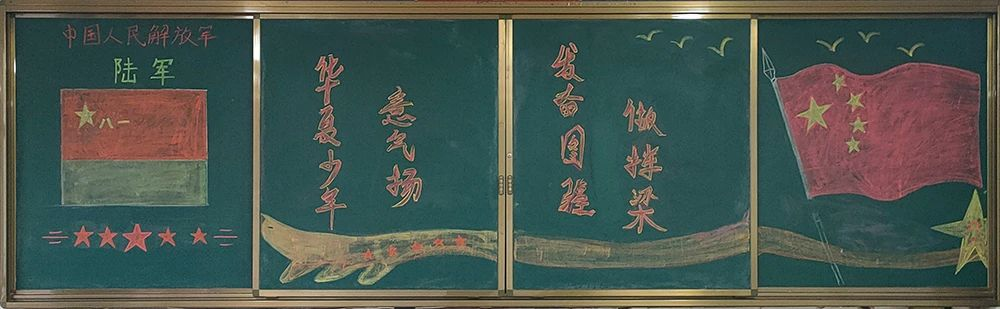 中国人民解放军
陆军
八一
华夏少年
意气扬
发奋图强
做栋梁